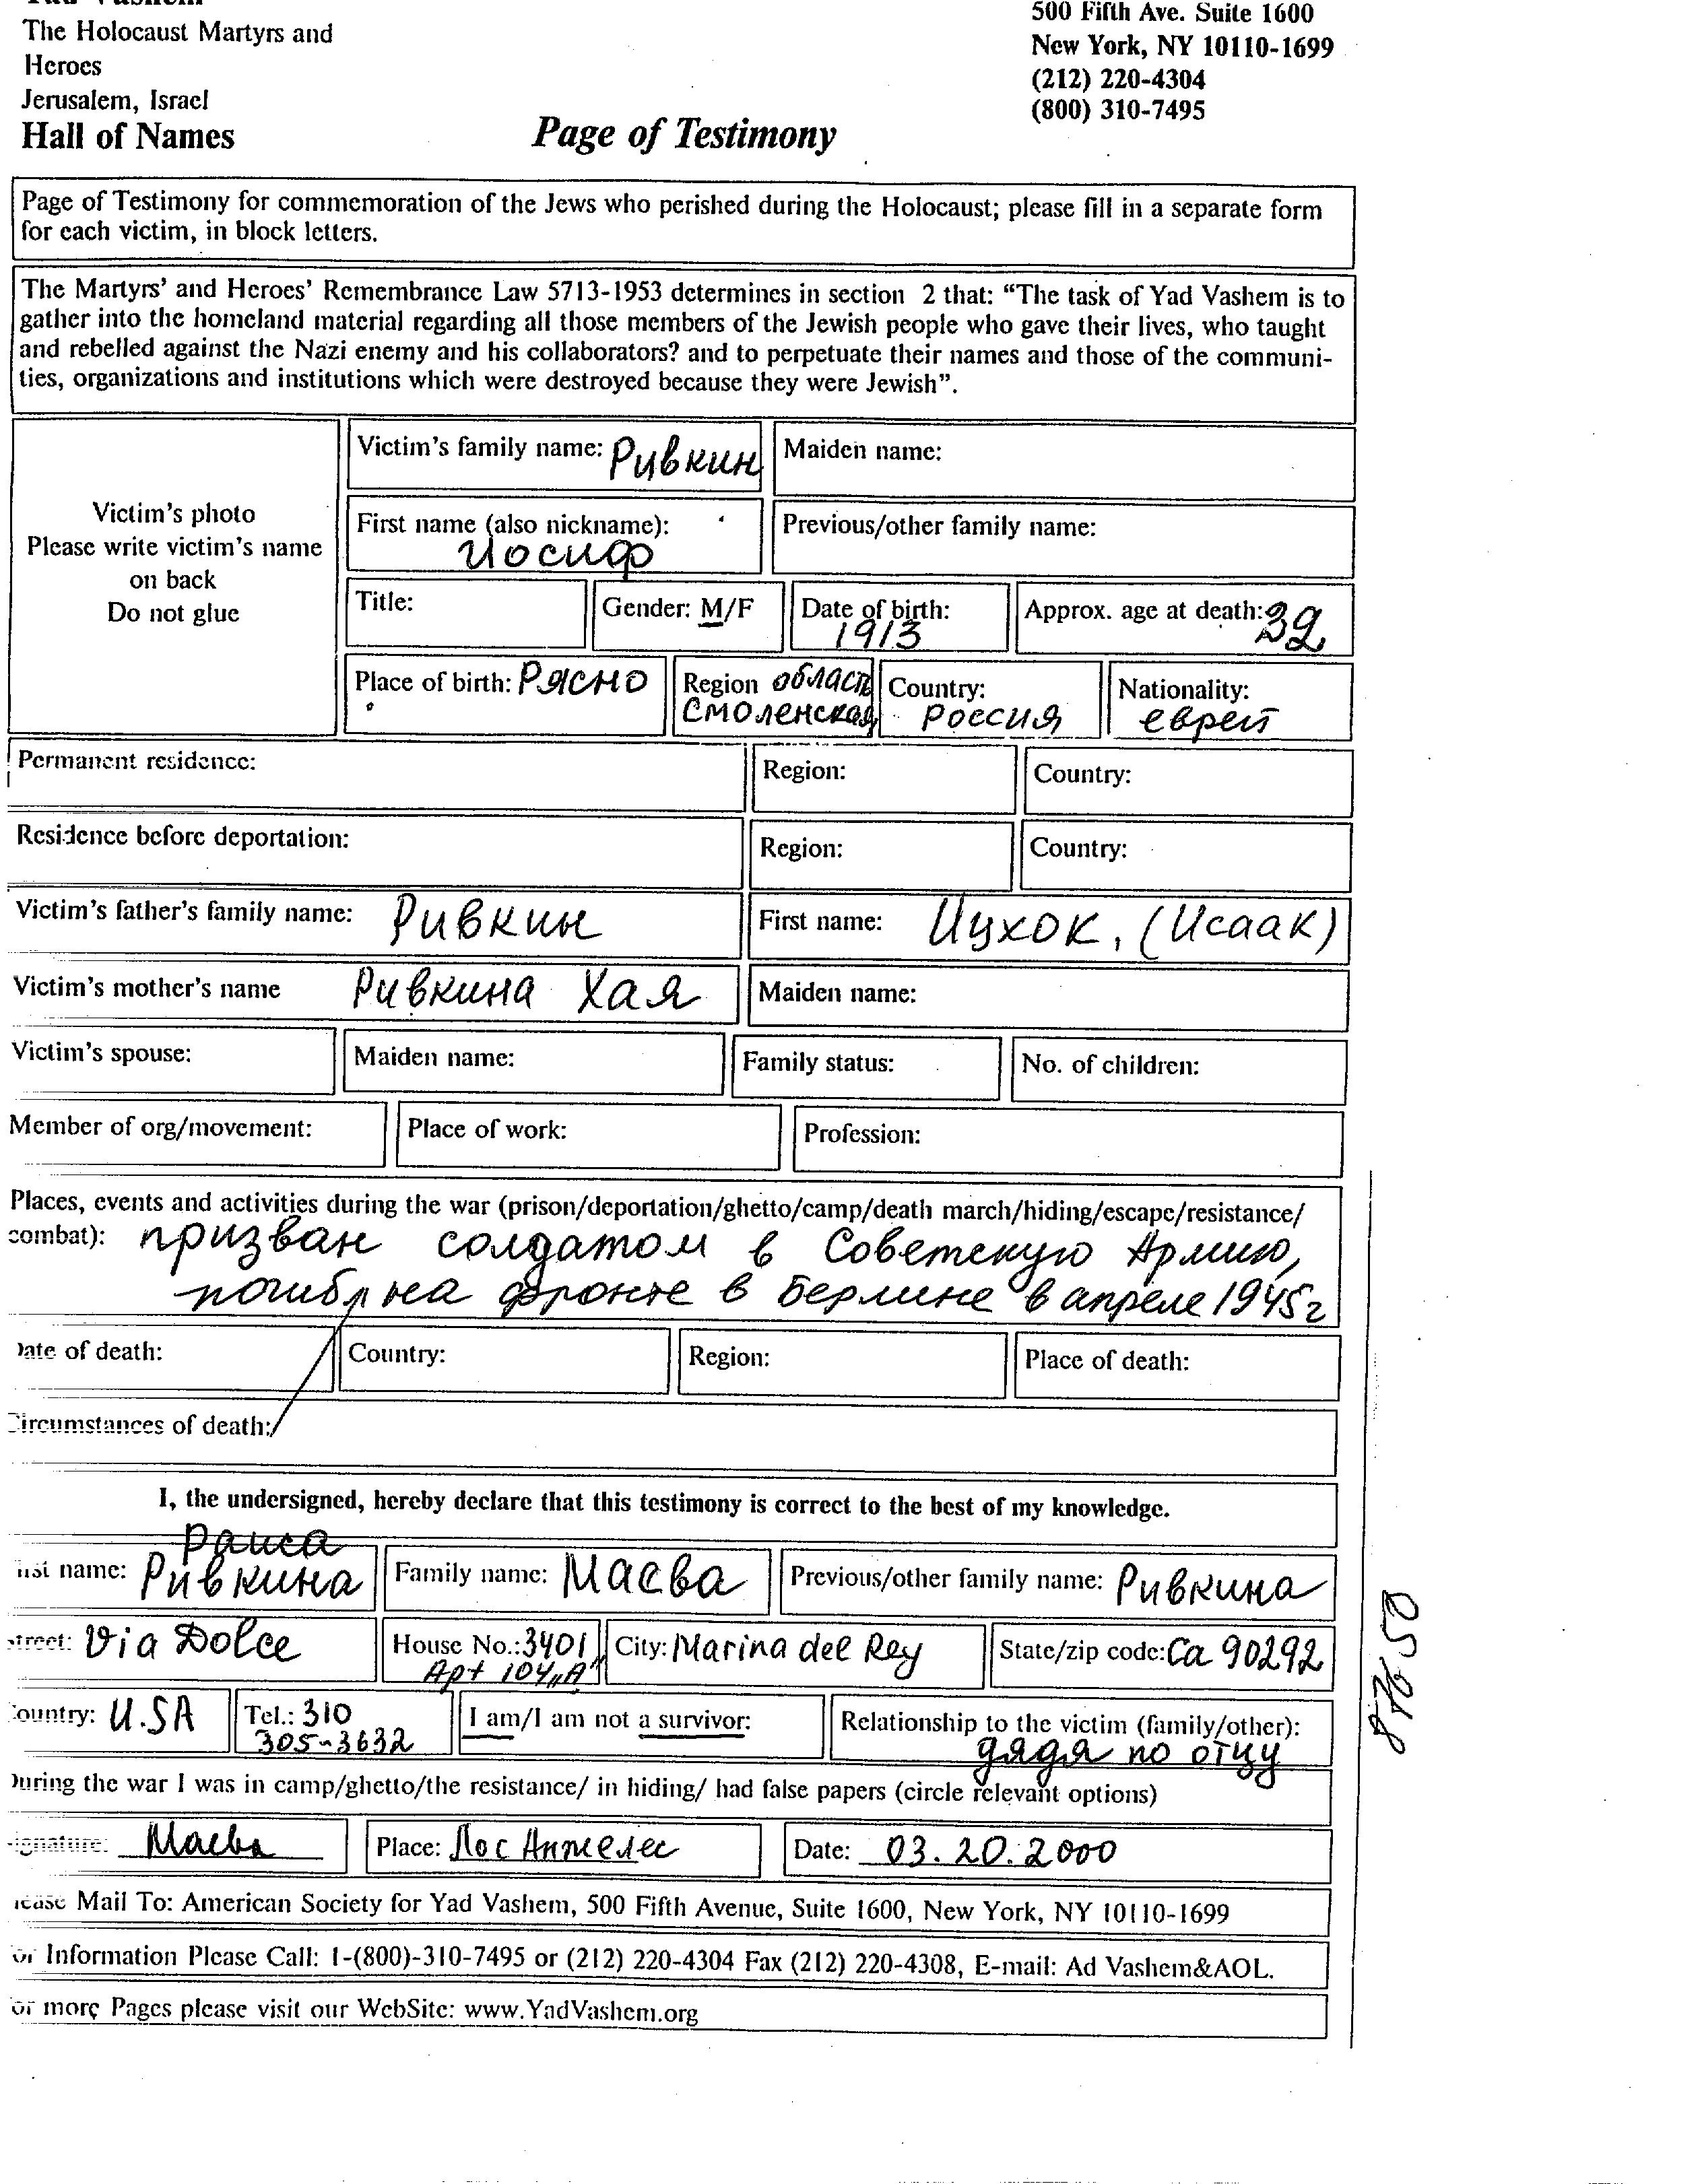 Yad Vashem
The Holocaust Martyrs and
Heroes
Jerusalem, Israel
Hall of Names
500 Fifth Ave. Suite 1600
New York, NY 10110-1699
(212) 220-4304
(800) 310-7495
Page of Testimony
Page of Testimony for commemoration of the Jews who perished during the Holocaust; please fill in a separate form
for each victim, in block letters.
The Martyrs' and Heroes' Remembrance Law 5713-1953 determines in section 2 that: "The task of Yad Vashem is to
gather into the homeland material regarding all those members of the Jewish people who gave their lives, who taught
and rebelled against the Nazi enemy and his collaborators? and to perpetuate their names and those of the communi-
ties, organizations and institutions which were destroyed because they were Jewish".
Victim's photo
Please write victim's name
on back
Do not glue
Victim's family name: Ривкин
Maiden name:
First name (also nickname):
Иосиф
Previous/other family name:
Title:
Gender: M/F
Date of birth:
1913
Approx. age at death: 32
Place of birth: Рясно
Region область
Смоленская
Country:
Россия
Nationality:
еврей
Permanent residence:
Region:
Country:
Residence before deportation:
Region:
Country:
Victim's father's family name: Ривкин
First name: Ицхок, (Исаак)
Victim's mother's name Ривкина Хая
Maiden name:
Victim's spouse:
Maiden name:
Family status:
No. of children:
Member of org/movement:
Place of work:
Profession:
Places, events and activities during the war (prison/deportation/ghetto/camp/death march/hiding/escape/resistance/
combat): призван солдатом в Советскую Армию,
погиб на фронте в Берлине в апреле 1945г
Date of death:
Country:
Region:
Place of death:
Circumstances of death:
I, the undersigned, hereby declare that this testimony is correct to the best of my knowledge.
Раиса
First name: Ривкина
Family name: Маева
Previous/other family name: Ривкина
Street: Via Dolce
House No.: 3401
Apt 104 „A"
City: Marina del Rey
State/zip code: Ca 90292
Country: U.SA
Tel.: 310
305-3632
I am/I am not a survivor:
Relationship to the victim (family/other):
дядя по отцу
During the war I was in camp/ghetto/the resistance/ in hiding/ had false papers (circle relevant options)
Signature: Маева
Place: Лос Анжелес
Date: 03.20.2000
Please Mail To: American Society for Yad Vashem, 500 Fifth Avenue, Suite 1600, New York, NY 10110-1699
For Information Please Call: 1-(800)-310-7495 or (212) 220-4304 Fax (212) 220-4308, E-mail: Ad Vashem&AOL.
For more Pages please visit our WebSite: www.YadVashem.org